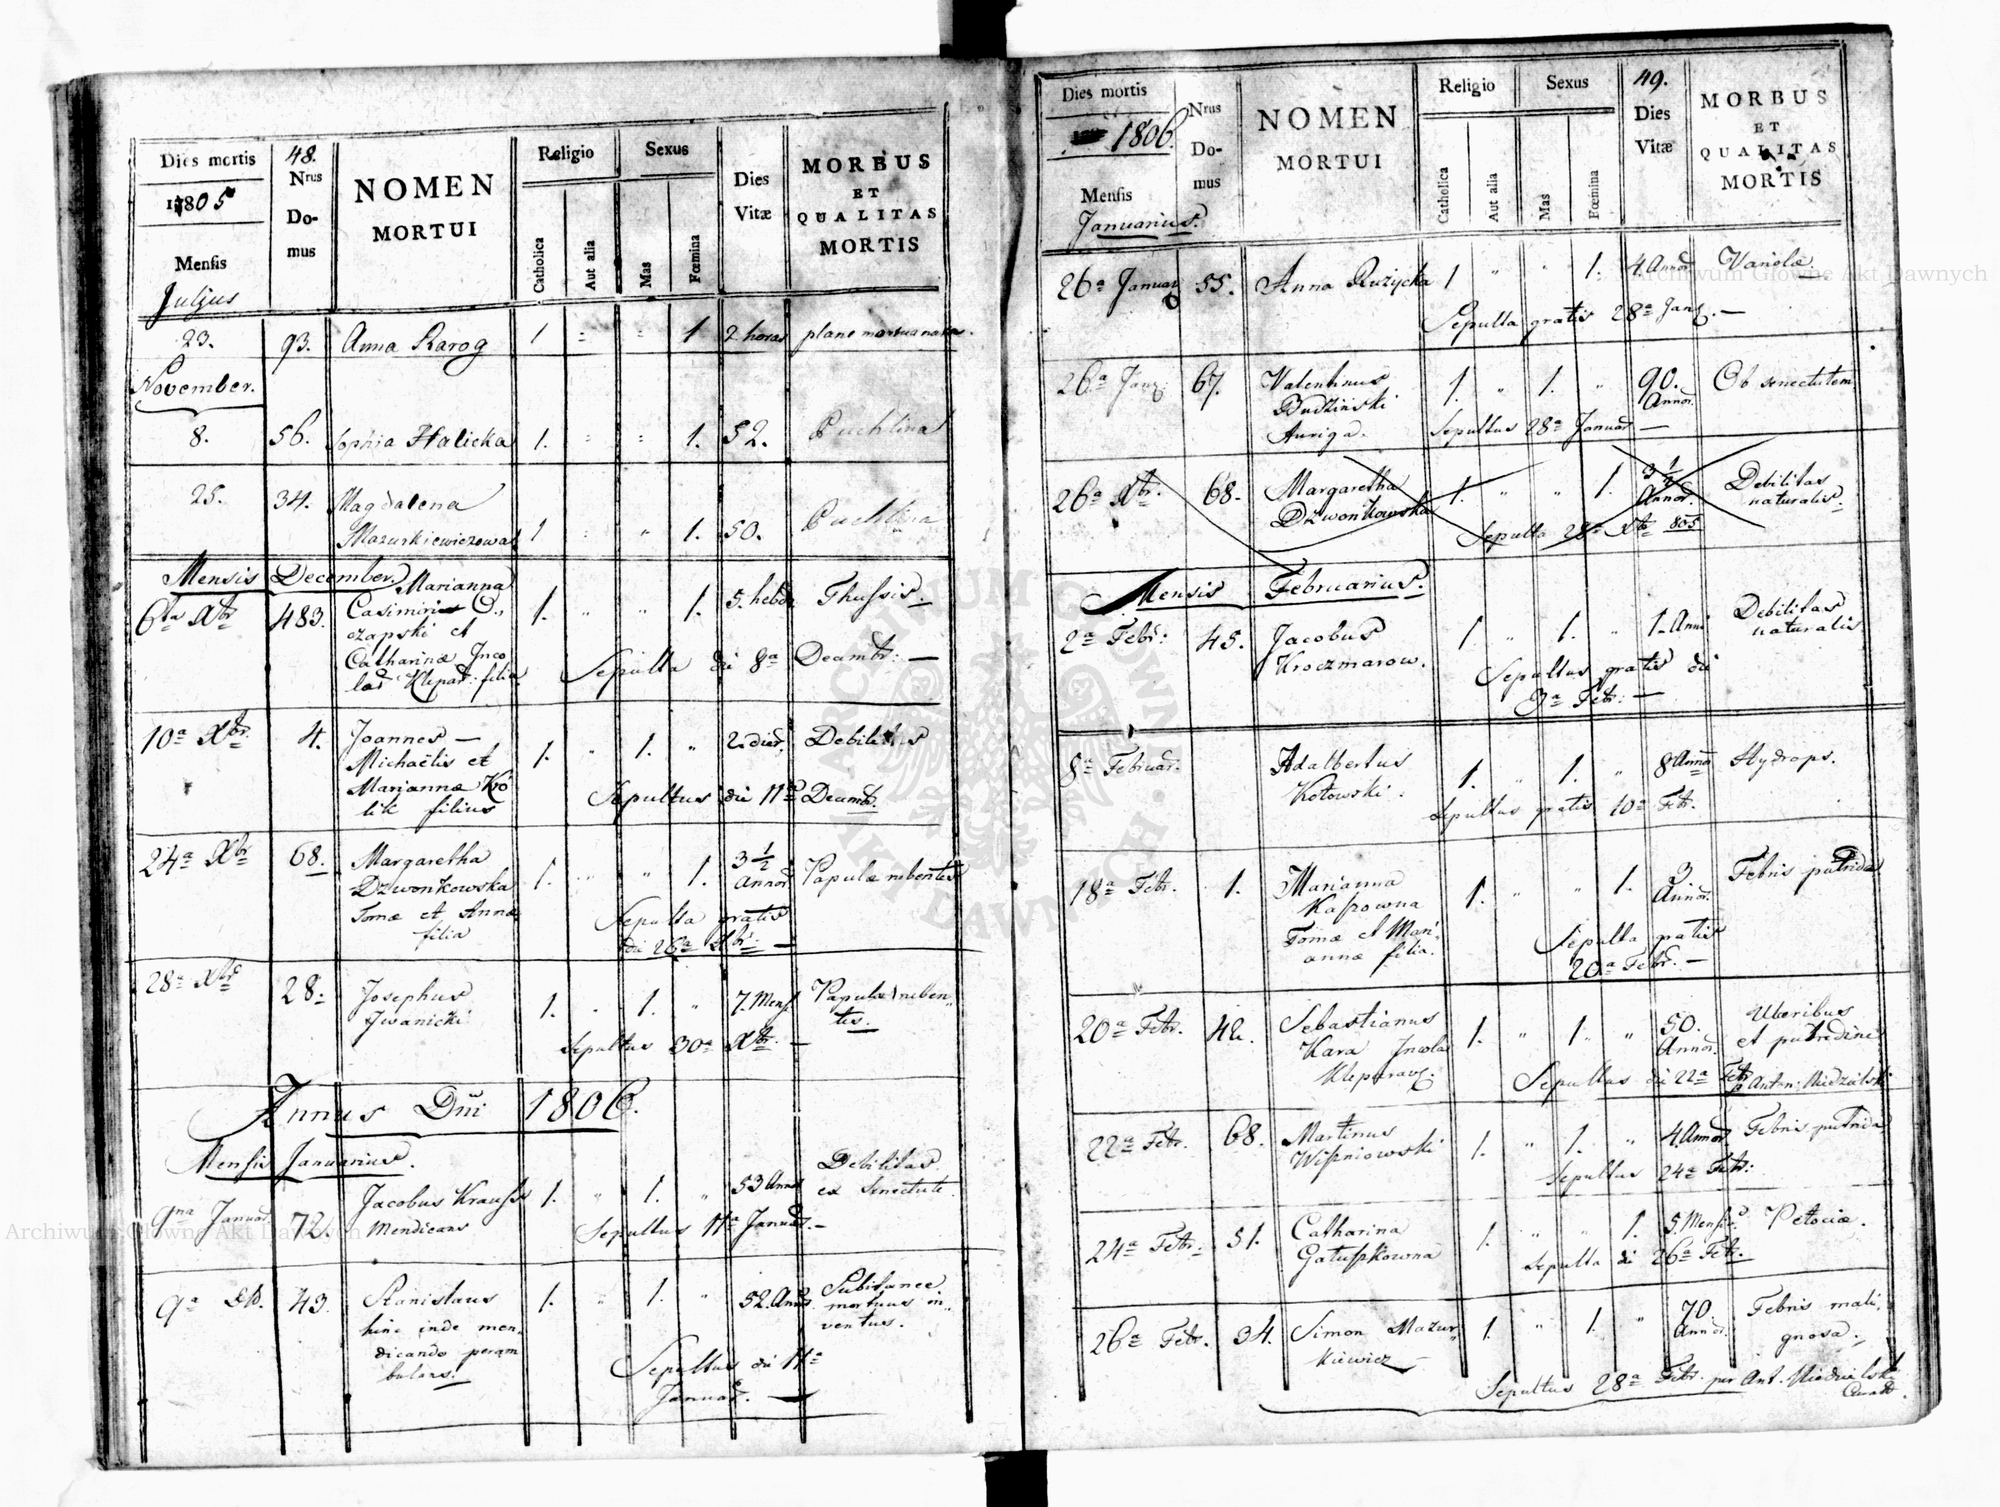 Dies mortis
1805
Mensis
Julius
48.
Nrus
Do-
mus
NOMEN
MORTUI
Religio
Catholica
Aut alia
Sexus
Mas
Fœmina
Dies
Vitæ
MORBUS
ET
QUALITAS
MORTIS
23. 93. Anna Rarog 1 " " 1 2 horas plane mortua nata.
November.
8. 56. Sophia Halicka 1. " " 1. 52. Puchlina
25. 34. Magdalena
Mazurkiewiczowa 1 " " 1. 50. Puchlina
Mensis December.
6ta Xbr 483. Marianna
Casimiri O-
czapski et
Catharinæ Inco
las Klepar: filia 1. " " 1. 5. hebd. Thussis.
Sepulta di 8a Decembr: —
10a Xbr. 4. Joannes —
Michaëlis et
Mariannæ Kró
lik filius 1. " 1. " 2. dier. Debilitas
Sepultus di 11a Decemb.
24a Xbr 68. Margaretha
Dzwonkowska
Tomæ et Annæ
filia 1. " " 1. 3 1/2
Annor. Papulæ rubentes
Sepulta gratis
di 26a Xbr: —
28a Xbr 28. Josephus
Iwanicki 1. " 1. " 7. Mens. Papulæ ruben-
tes.
Sepultus 30a Xbr. —
Annus Dni 1806.
Mensis Januarius.
9na Januar. 72. Jacobus Krauss
Mendicans 1. " 1. " 53 Annor Debilitas
ex senectute.
Sepultus 11a Januar. —
9a 43. Stanislaus
hinc inde men-
dicando peram
bulans. 1. " 1. " 52. Annor. Subitanee
mortuus in-
ventus.
Sepultus di 11a
Januar. —
Dies mortis
1806.
Mensis
Januarius.
Nrus
Do-
mus
NOMEN
MORTUI
Religio
Catholica
Aut alia
Sexus
Mas
Fœmina
49.
Dies
Vitæ
MORBUS
ET
QUALITAS
MORTIS
26a Januar 55. Anna Ruzycka 1 " " 1. 4. Annor Variolæ
Sepulta gratis 28a Jan. —
26a Jan: 67. Valentinus
Budzinski
Auriga. 1. " 1. " 90.
Annor. Ob senectutem
Sepultus 28a Januar —
26a Xbr. 68. Margaretha
Dzwonkowska 1. " " 1. 3 1/2
Annor. Debilitas
naturalis.
Sepulta 28a Xbr 805
Mensis Februarius.
2a Febr: 45. Jacobus
Kroczmarow. 1. " 1. " 1. Anni Debilitas
naturalis
Sepultus gratis di
3a Febr. —
8a Februar. Adalbertus
Kotowski. 1. " 1. " 8 Annor Hydrops.
Sepultus gratis 10a Febr.
18a Febr. 1. Marianna
Kaszowna
Tomæ et Mari-
annæ filia. 1. " " 1. 3
Annor. Febris putrida
Sepulta gratis
20a Febr. —
20a Febr. 42. Sebastianus
Kara Incola
Kleparz. 1. " 1. " 50.
Annor. Ulceribus
et putredine
Sepultus di 22a Febr p Anton: Niedzielski
22a Febr. 68. Martinus
Wiszniowski 1. " 1. " 4. Annor Febris putrida
Sepultus 24a Febr:
24a Febr. 51. Catharina
Gatuszkowna 1. " " 1. 5. Mensis. Petociæ.
Sepulta di 26a Febr.
26a Febr. 34. Simon Mazur-
kiewicz 1. " 1. " 70.
Annor. Febris mali-
gnosa.
Sepultus 28a Febr. per Ant. Niedzielski
Curatt.
Archiwum Główne Akt Dawnych
Archiwum Główne Akt Dawnych
ARCHIWUM GŁÓWNE · AKT DAWNYCH ·